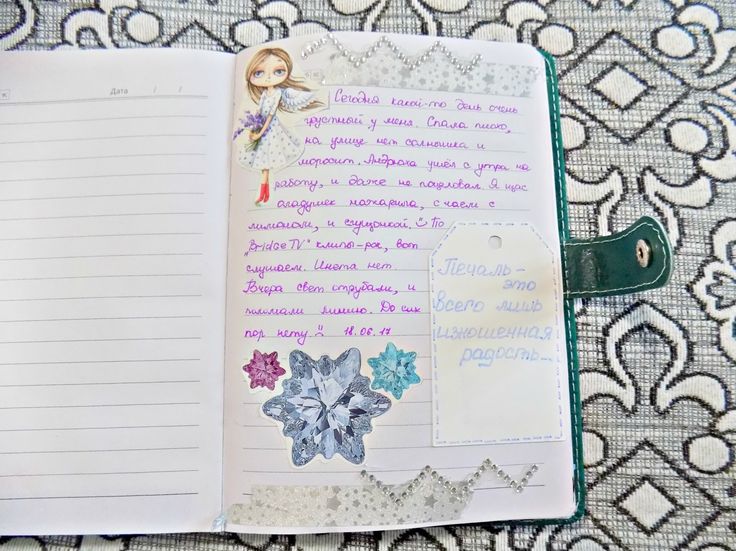 Дата / /
Сегодня какой-то день очень
грустный у меня. Спала плохо,
на улице нет солнышка и
моросит. Андрюха ушёл с утра на
работу, и даже не поцеловал. Я щас
оладушек нажарила, с чаем с
лимоном, и сгущонкой. По
„Bridge TV" клипы-рок, вот
слушаем. Инета нет.
Вчера свет отрубали, и
поломали линию. До сих
пор нету 18.06.17
Печаль -
это
всего лишь
изношенная
радость...